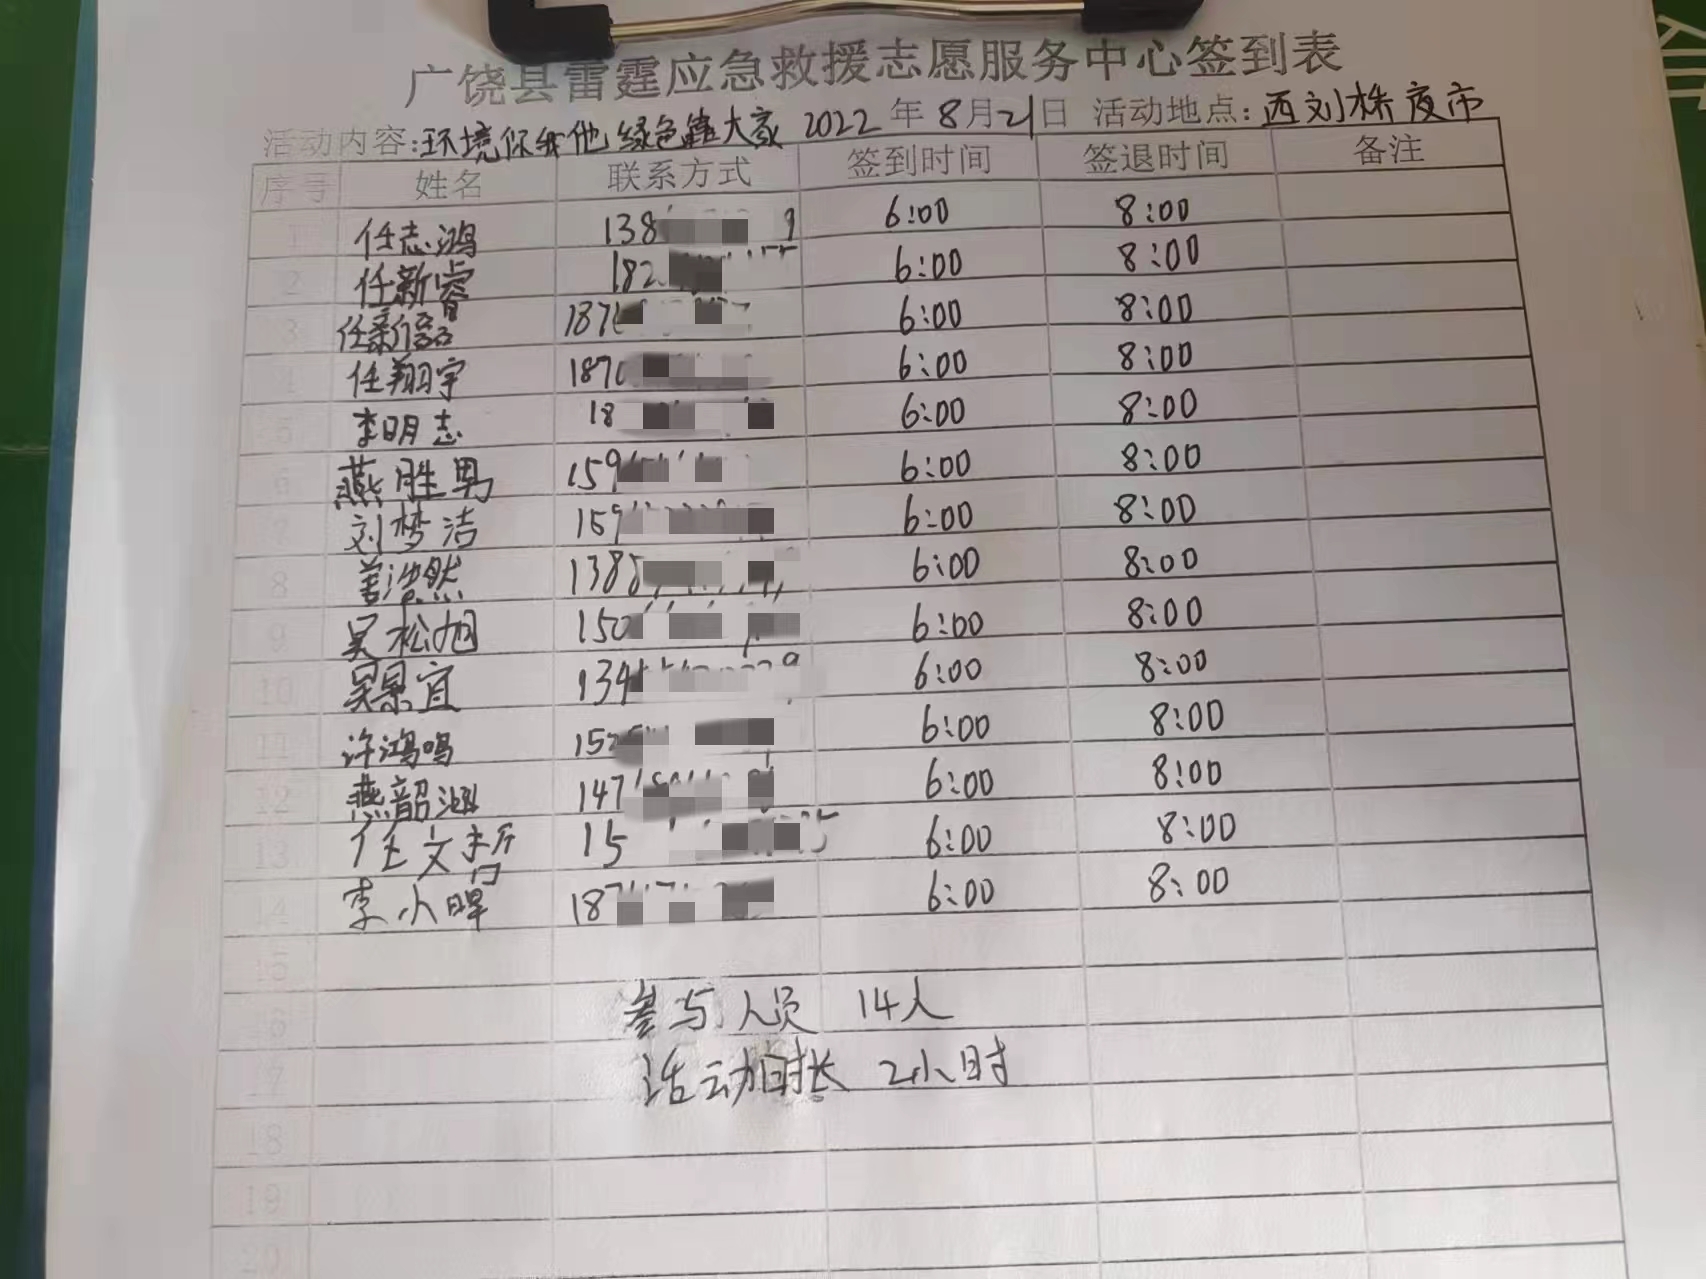 广饶县雷霆应急救援志愿服务中心签到表
活动内容:环境你我他绿色靠大家 2022年8月21日 活动地点:西刘桥夜市
序号 姓名 联系方式 签到时间 签退时间 备注
1 任志鸿 138 9 6:00 8:00
2 任新睿 182 6:00 8:00
3 任新语 187 6:00 8:00
4 任翔宇 1870 6:00 8:00
5 李明志 18 6:00 8:00
6 燕胜男 159 6:00 8:00
7 刘梦洁 159 6:00 8:00
8 姜浩然 1385 6:00 8:00
9 吴松旭 150 6:00 8:00
10 吴景宜 134 6:00 8:00
11 许鸿鸣 152 6:00 8:00
12 燕韶涵 147 6:00 8:00
13 任文 15 6:00 8:00
14 李小晔 187 6:00 8:00
15
16 参与人员 14人
17 活动时长 2小时
18
19
20